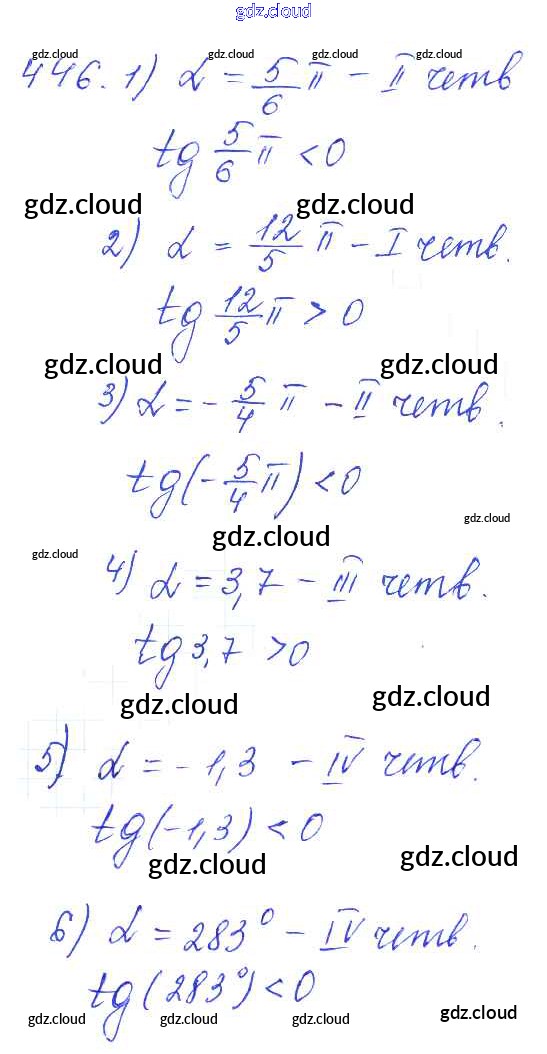 gdz.cloud
gdz.cloud gdz.cloud gdz.cloud gdz.cloud
446. 1) α = 5/6 π – II четв
tg 5/6 π < 0
gdz.cloud gdz.cloud
2) α = 12/5 π – I четв.
tg 12/5 π > 0
gdz.cloud gdz.cloud
3) α = – 5/4 π – II четв.
tg(– 5/4 π) < 0
gdz.cloud
gdz.cloud
gdz.cloud
4) α = 3,7 – III четв.
tg 3,7 > 0
gdz.cloud gdz.cloud
5) α = – 1,3 – IV четв.
tg(–1,3) < 0
gdz.cloud gdz.cloud
6) α = 283° – IV четв.
tg(283°) < 0
gdz.cloud gdz.cloud gdz.cloud gdz.cloud